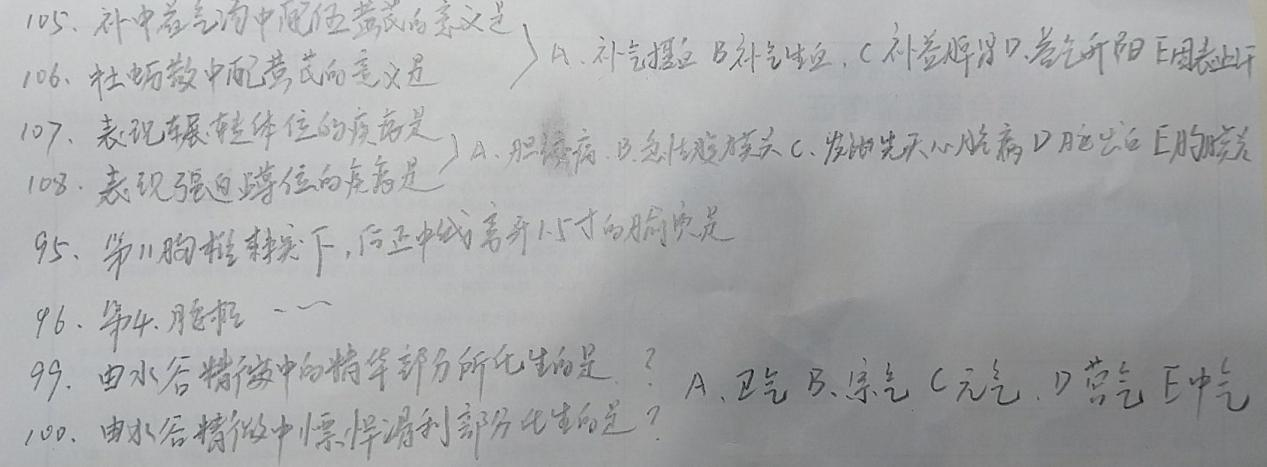 105、补中益气汤中配伍黄芪的意义是
106、牡蛎散中配黄芪的意义是
A、补气摄血 B 补气生血、C 补益脾胃 D、益气升阳 E 固表止汗
107、表现辗转体位的疾病是
108、表现强迫蹲位的疾病是
A、胆 病、B、急性腹膜炎 C、发绀先天心脏病 D E 胸膜炎
95、第11胸椎棘突下,后正中线旁开1.5寸的腧穴是
96、第4、腰椎 ……
99、由水谷精微中的精华部分所化生的是?
100、由水谷精微中慓悍滑利部分化生的是?
A、卫气 B、宗气 C 元气、D 营气 E 中气